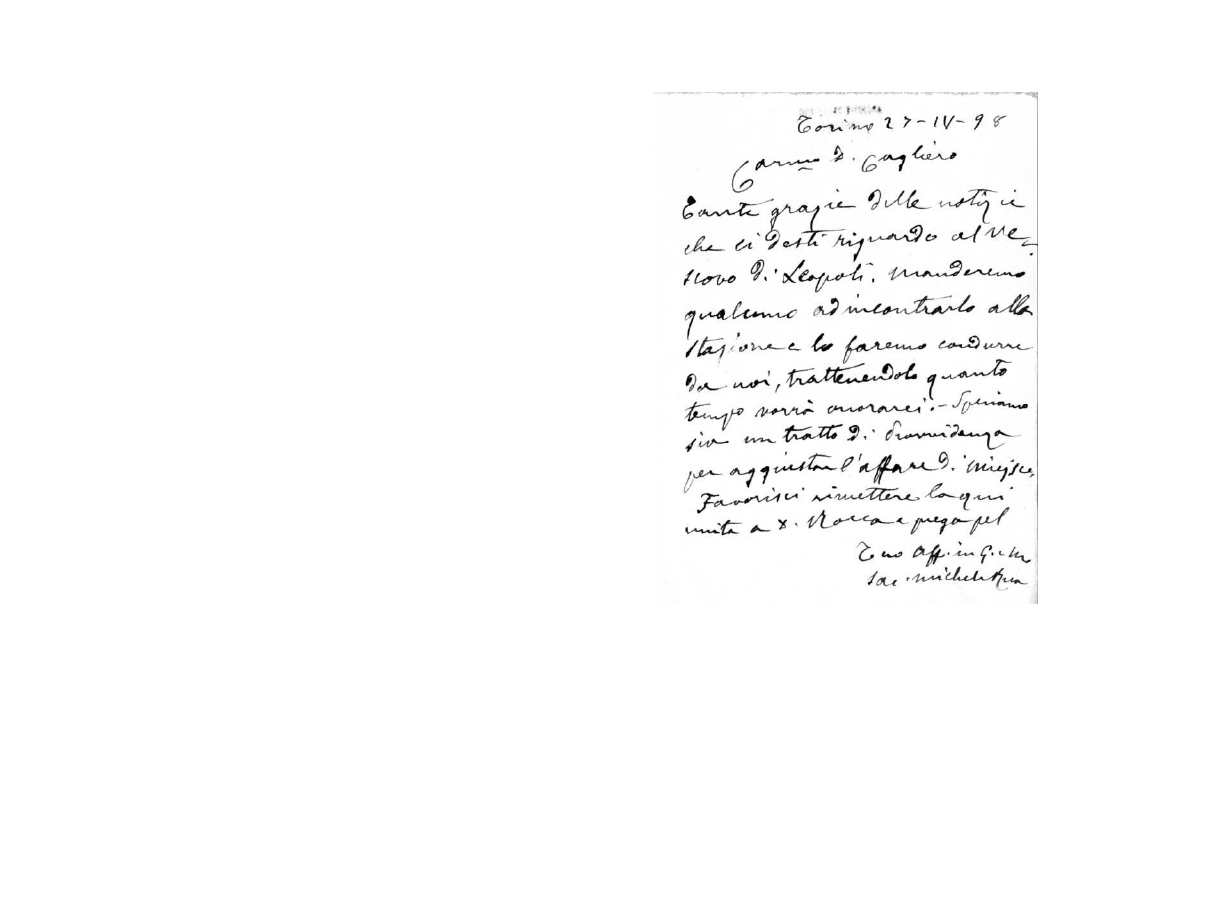 Torino 27-IV-98
Carmo D. Cagliero
Tante grazie delle notizie
che ci desti riguardo al Ve-
scovo di Leopoli. Manderemo
qualcuno ad incontrarlo alla
stazione e lo faremo condurre
da noi, trattenendolo quanto
tempo vorrà onorarci. - Speriamo
sia un tratto di Provvidenza
per aggiustar l'affare di Miejsce.
Favorisci rimettere la qui
unita a D. Rocca e prega pel
Tuo aff. in G. e M.
Sac. Michele Rua